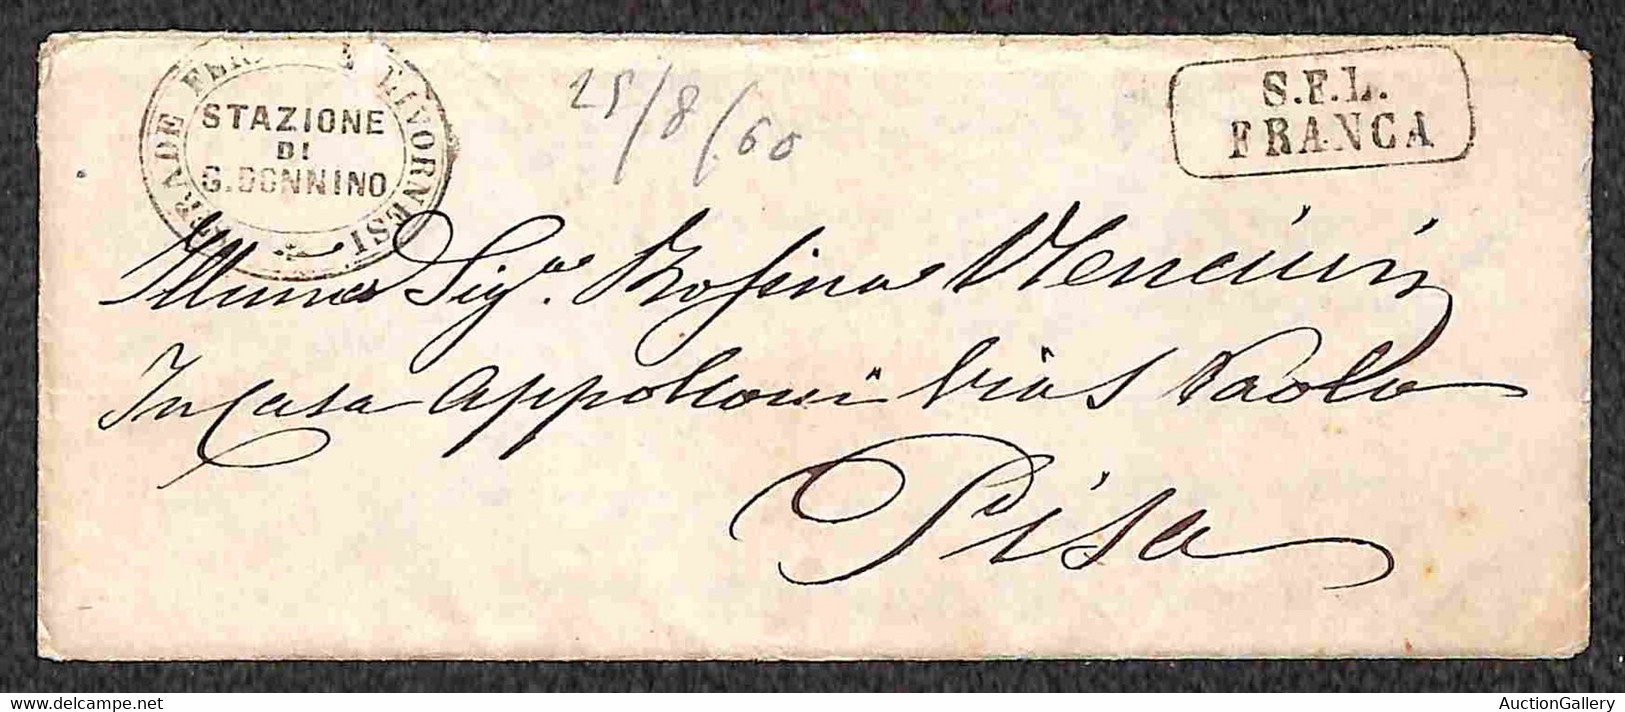 STRADE FERRATE LIVORNESI
STAZIONE
DI
S.DONNINO
25/8/60
S.F.L.
FRANCA
Illma Sigra. Rosina Mencini
In Casa Appolloni Via S Paolo
Pisa
www.delcampe.net
AuctionGallery